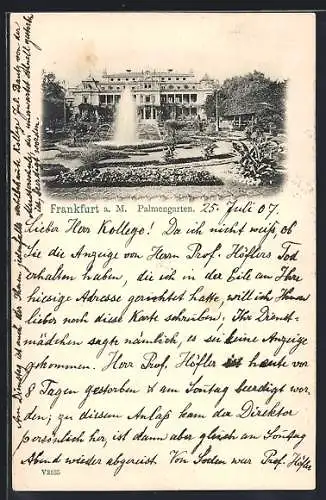 Frankfurt a. M. Palmengarten. 25. Juli 07.
Lieber Herr Kollege! Da ich nicht weiß, ob
Sie die Anzeige von Herrn Prof. Höflers Tod
erhalten haben, die ich in der Eile an Ihre
hiesige Adresse gerichtet hatte, will ich Ihnen
lieber noch diese Karte schreiben; Ihr Dienst-
mädchen sagte nämlich, es sei keine Anzeige
gekommen. Herr Prof. Höfler ist heute vor
8 Tagen gestorben & am Sonntag beerdigt wor-
den; zu diesem Anlaß kam der Direktor
persönlich her, ist dann aber gleich am Sonntag
Abend wieder abgereist. Von Soden war Prof. Höfler
V2135